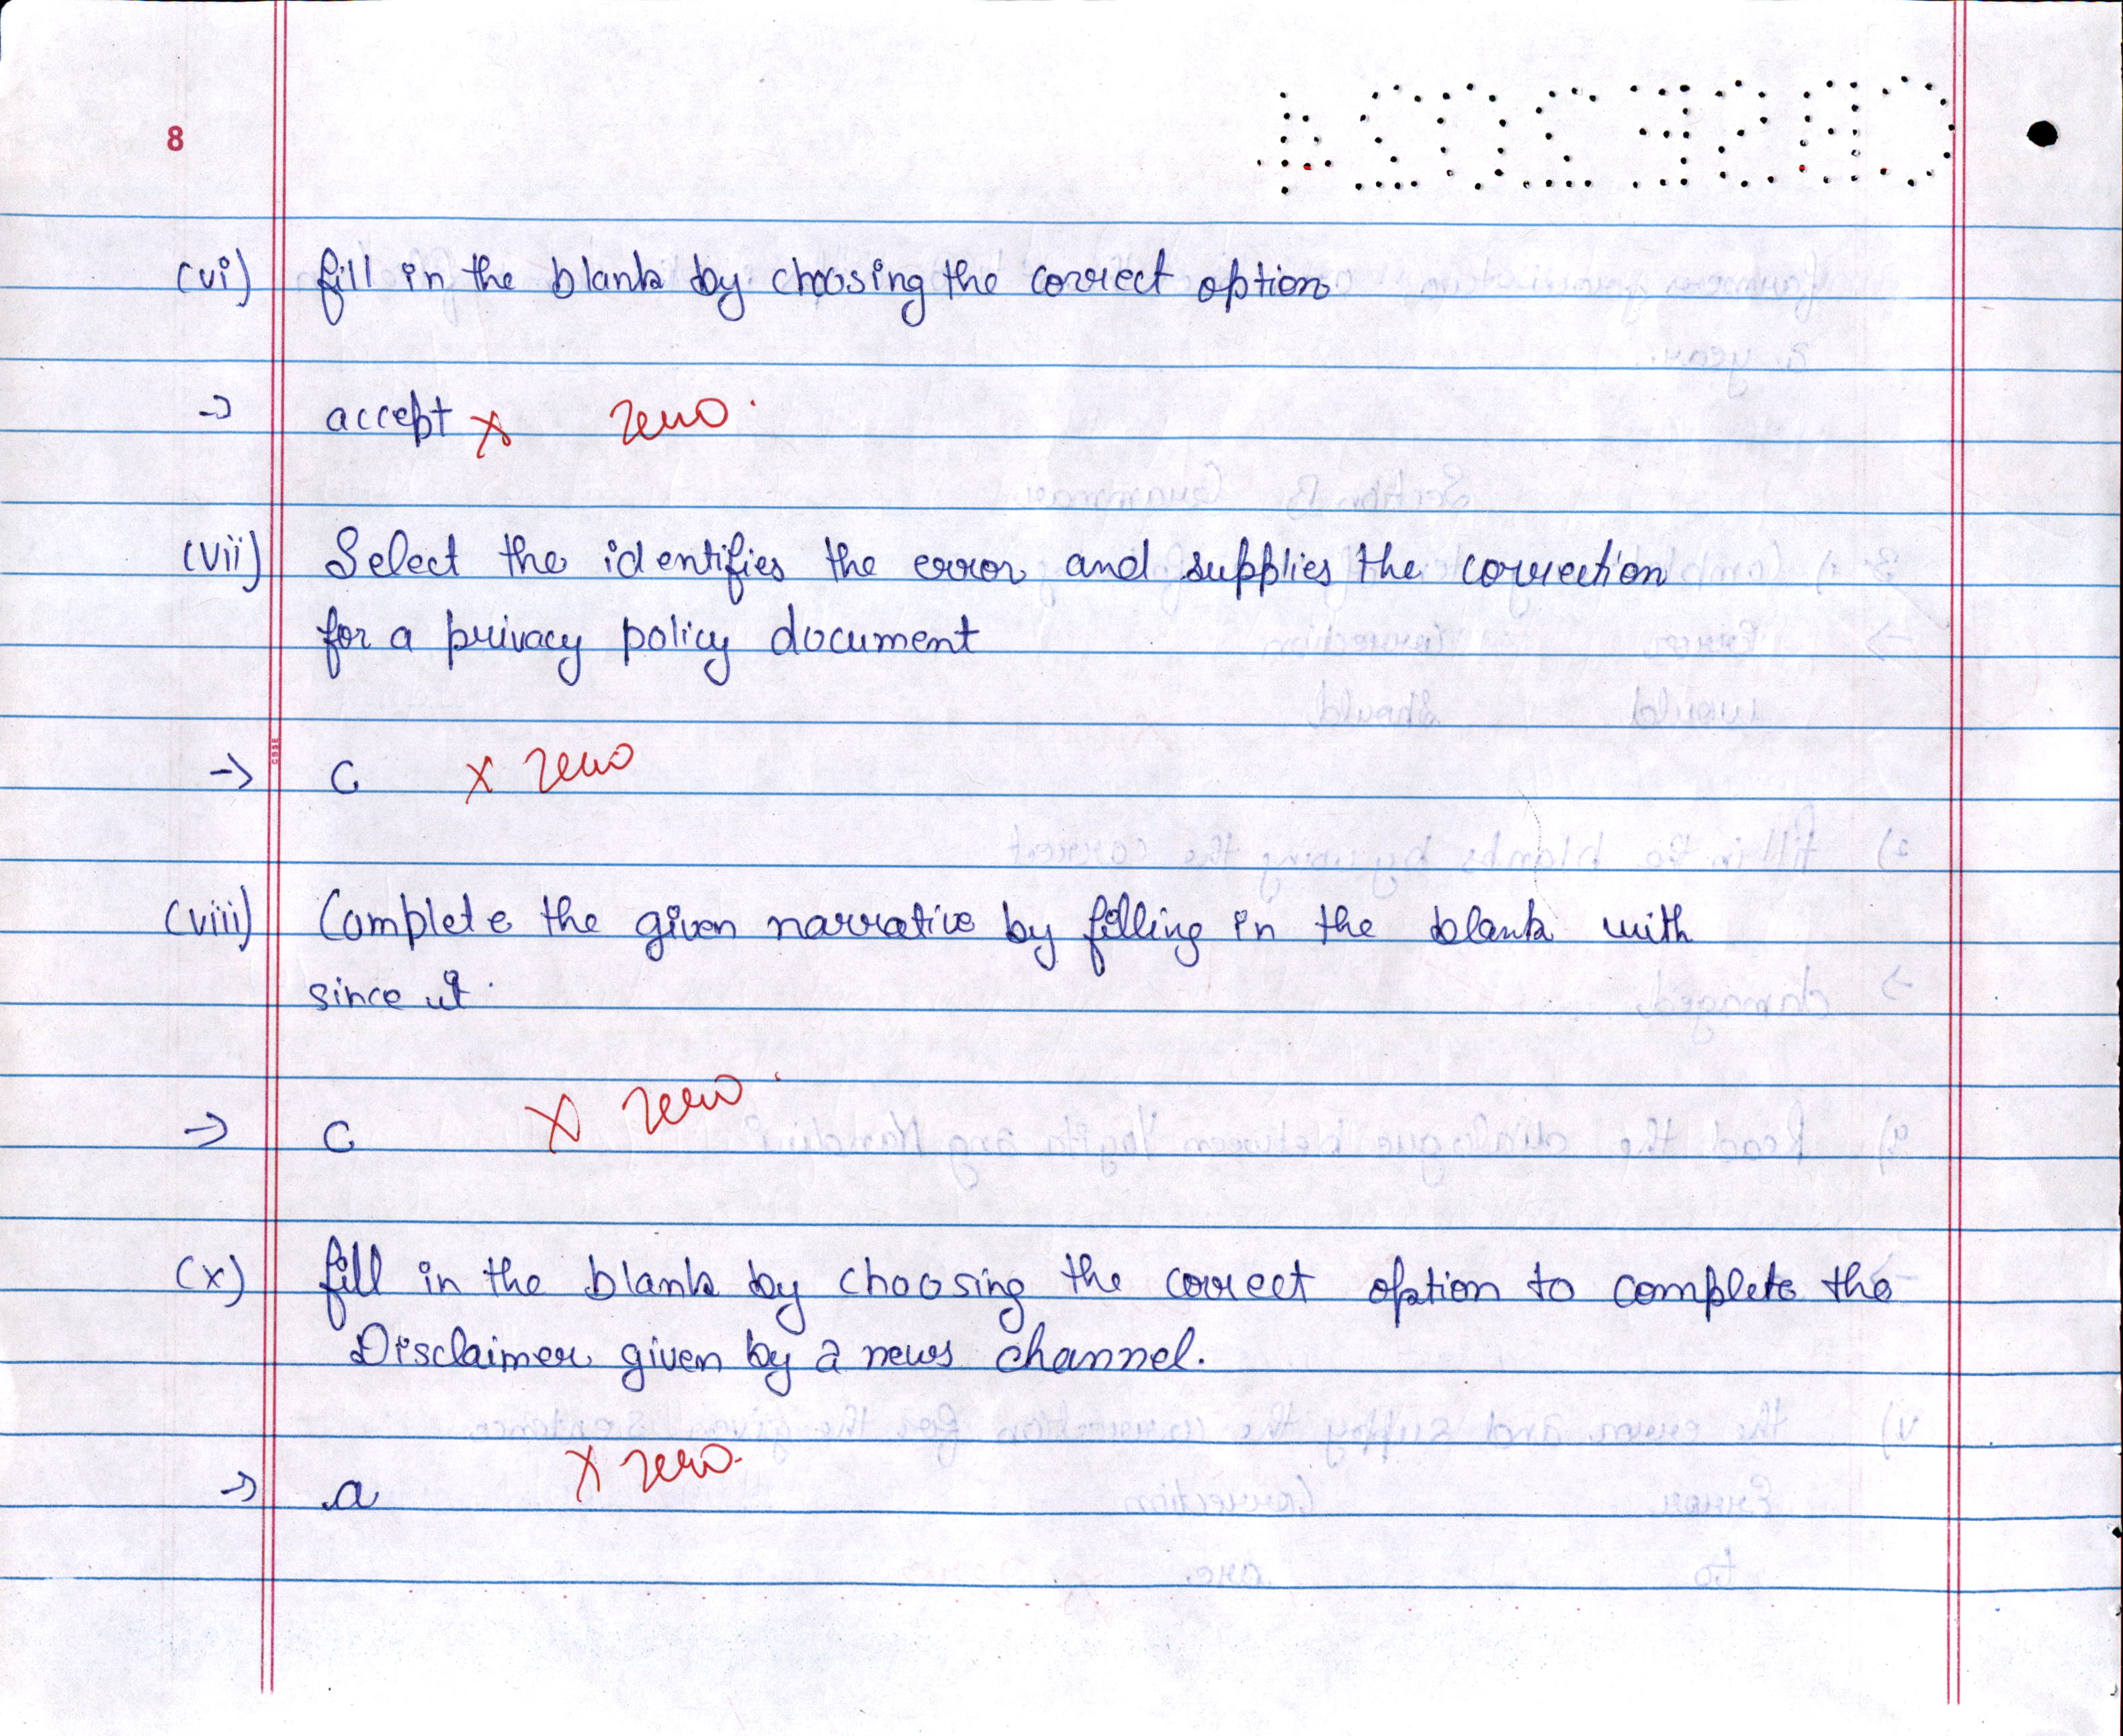 8
CBSE2024
(vi) fill in the blank by choosing the correct option
-> accept × zero.
(vii) Select the identifies the error and supplies the correction
for a privacy policy document
-> C × zero
(viii) Complete the given narrative by filling in the blank with
since it.
-> C × zero.
(x) fill in the blank by choosing the correct option to complete the
Disclaimer given by a news channel.
-> a × zero.
CBSE